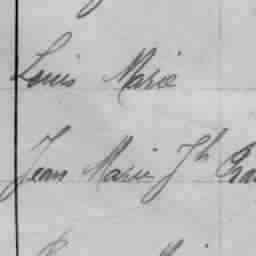 Louis Marie
Jean Marie Jh